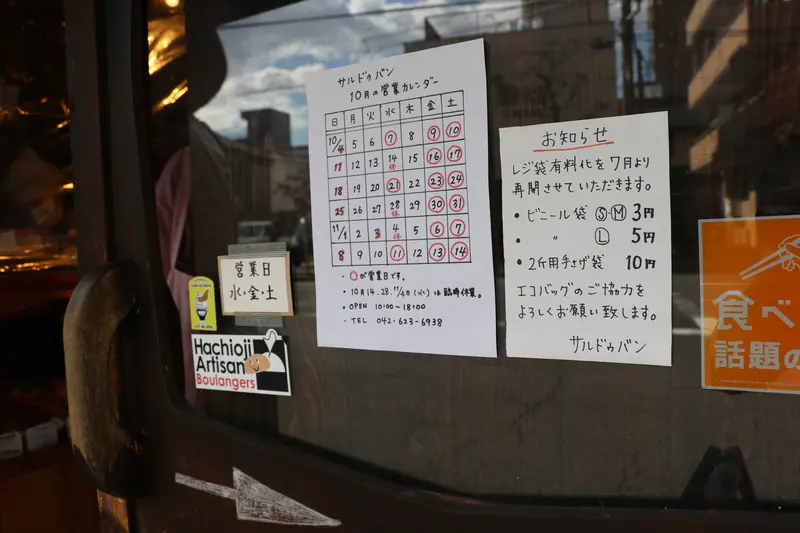 サルドゥバン
10月の営業カレンダー
日 月 火 水 木 金 土
10/4 5 6 7 8 9 10
11 12 13 14休 15 16 17
18 19 20 21 22 23 24
25 26 27 28休 29 30 31
11/1 2 3 4休 5 6 7
8 9 10 11 12 13 14
・○が営業日です。
・10月14.28.11/4日(水)は臨時休業。
・OPEN 10:00~18:00
・TEL 042-623-6938
お知らせ
レジ袋有料化を7月より
再開させていただきます。
・ビニール袋 S・M 3円
・ 〃 L 5円
・2斤用手さげ袋 10円
エコバッグのご協力を
よろしくお願い致します。
サルドゥバン
営業日
水・金・土
Hachioji
Artisan
Boulangers
食べ
話題の